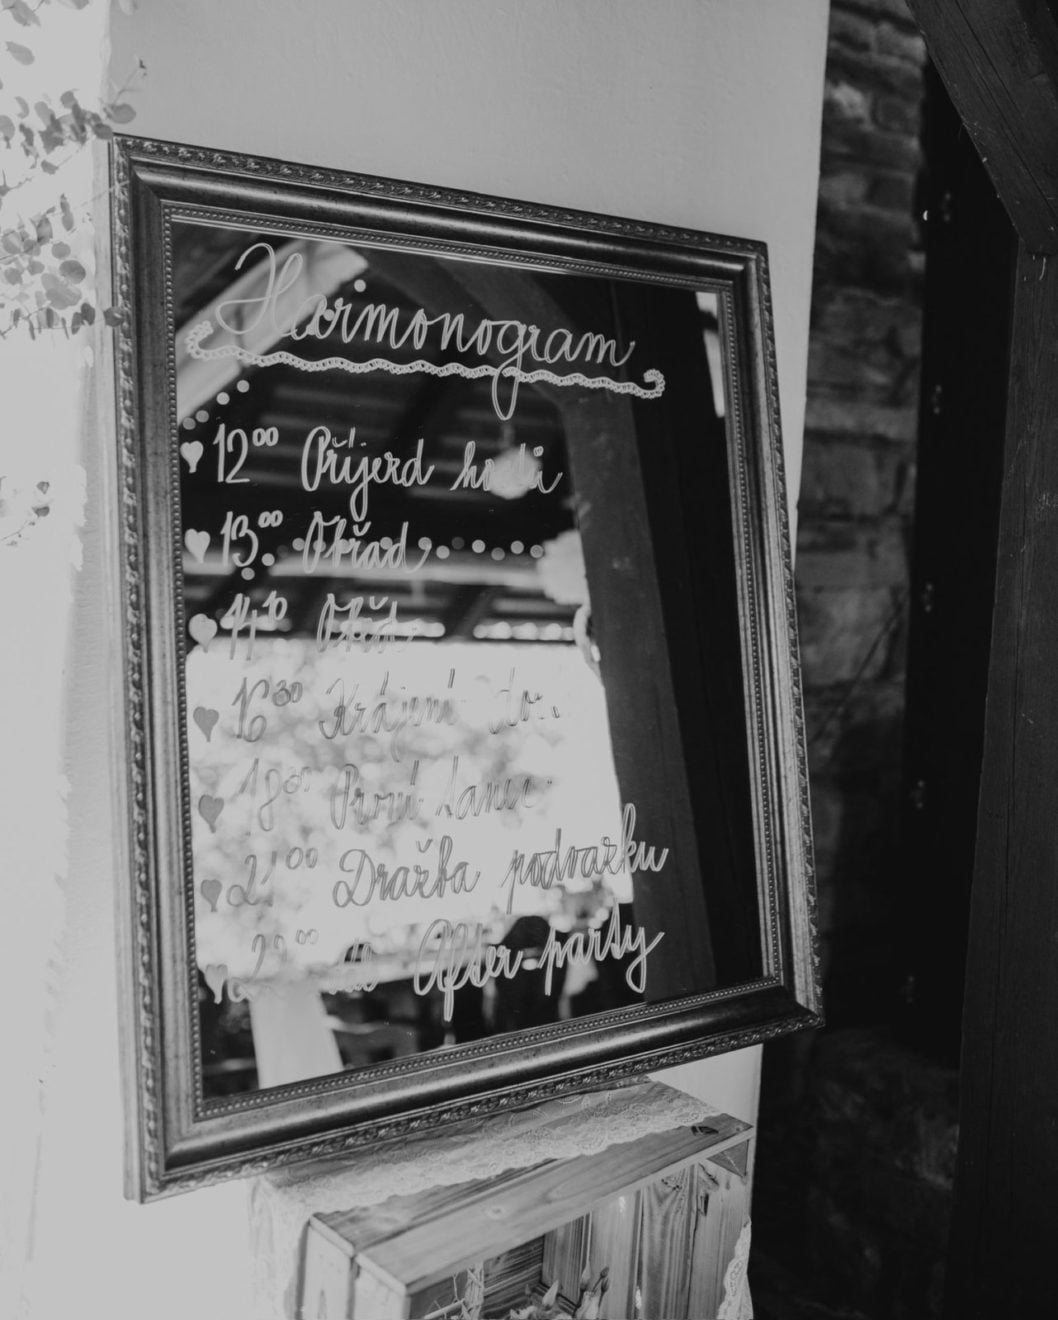 Harmonogram
12⁰⁰ Příjezd hostů
13⁰⁰ Obřad
14¹⁰ Oběd
16³⁰ Krájení
18⁰⁰ První tanec
21⁰⁰ Dražba podvazku
22⁰⁰ After party